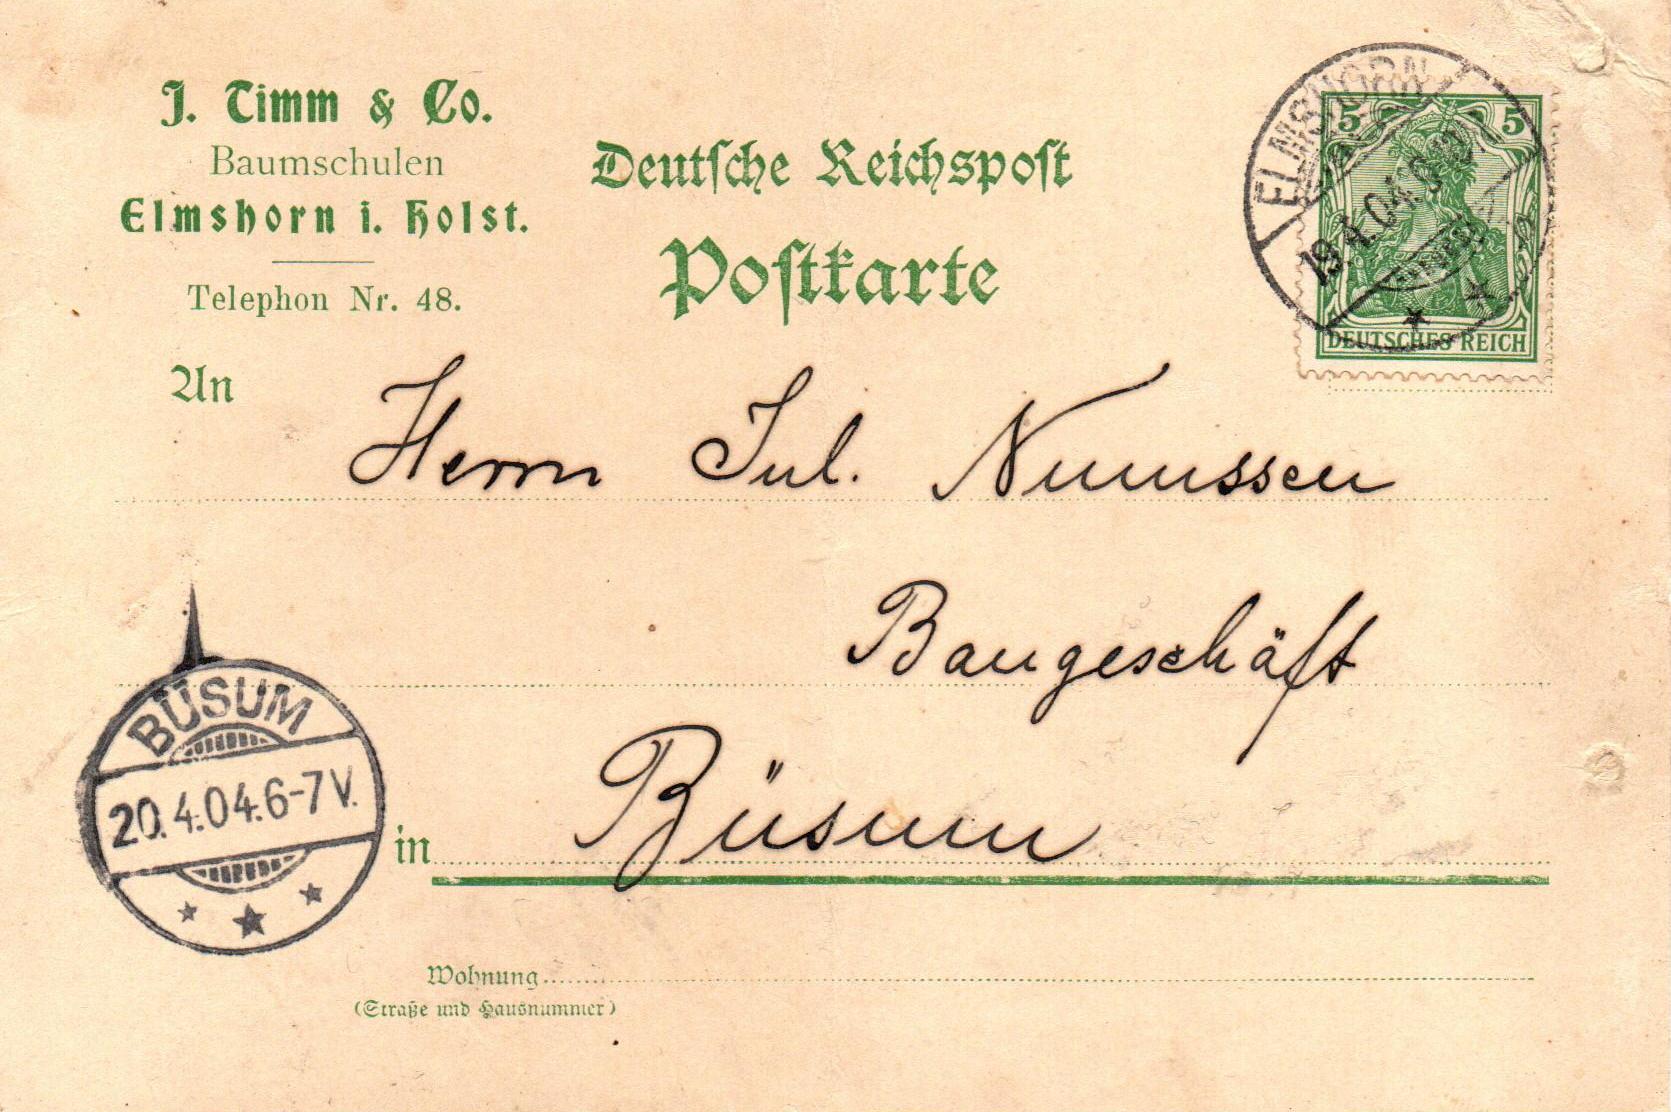 J. Timm & Co.
Baumschulen
Elmshorn i. Holst.
Telephon Nr. 48.
Deutsche Reichspost
Postkarte
ELMSHORN
19.4.04
5 5
DEUTSCHES REICH
An
Herrn Jul. Nummssen
Baugeschäft
BÜSUM
20.4.04.6-7 V.
in Büsum
Wohnung
(Straße und Hausnummer)